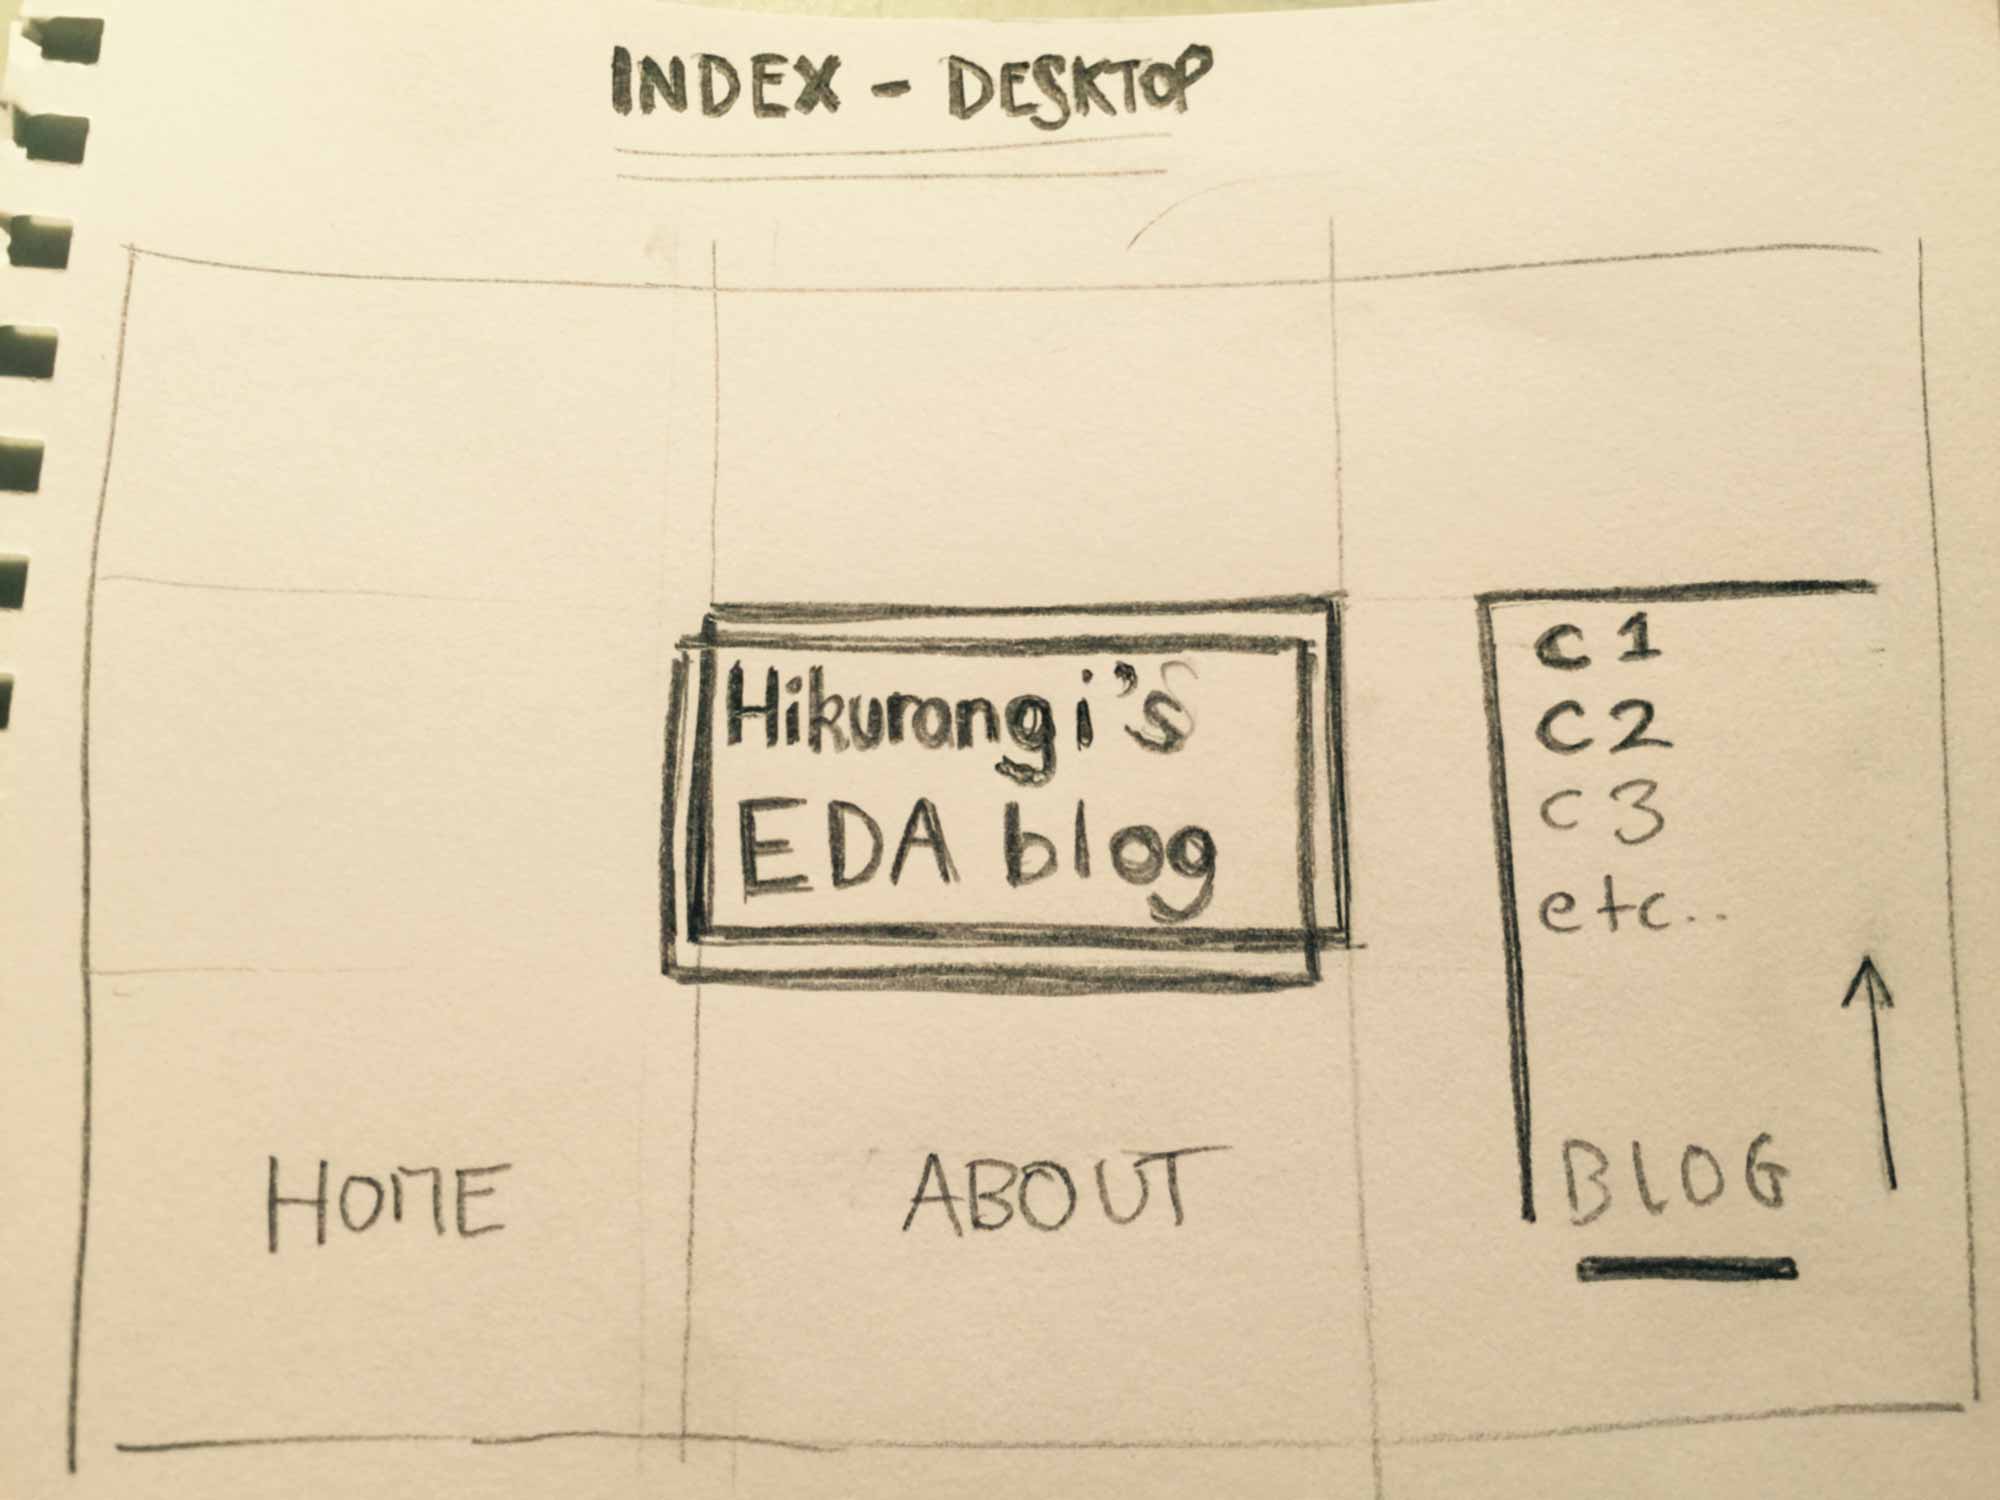 INDEX - DESKTOP
Hikurangi's
EDA blog
C1
C2
C3
etc..
HOME
ABOUT
BLOG